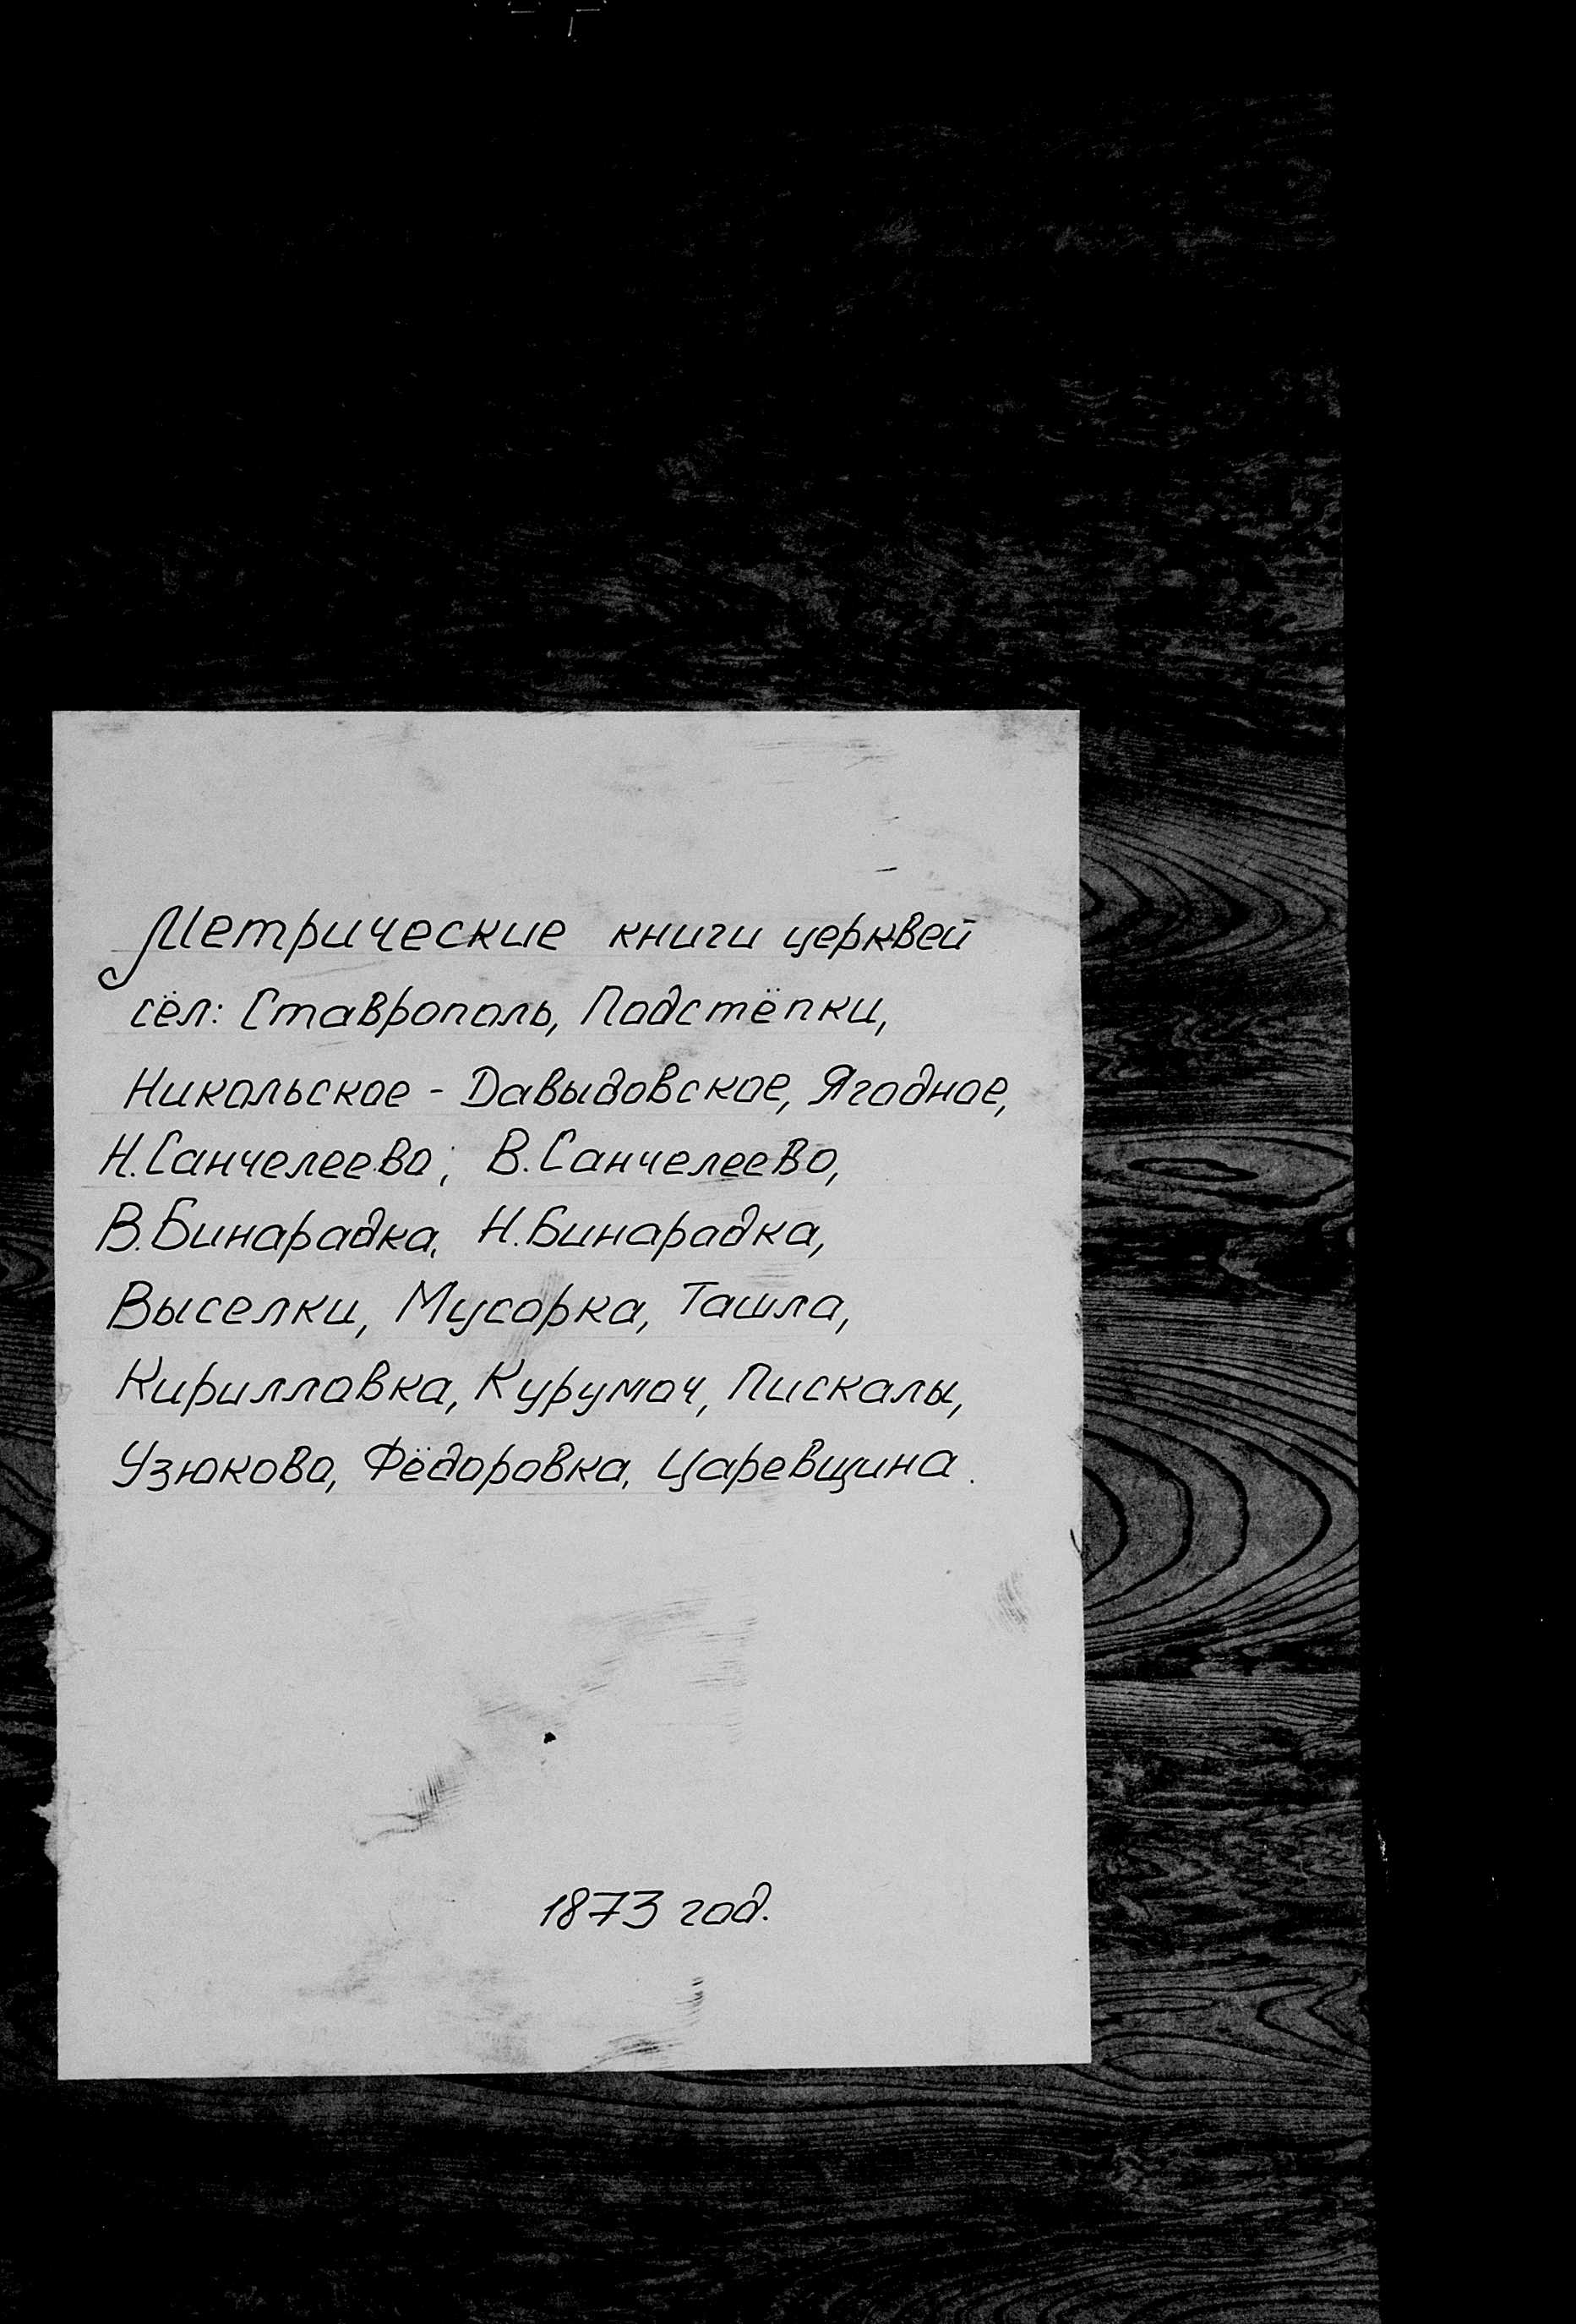 Метрические книги церквей
сёл: Ставрополь, Подстёпки,
Никольское - Давыдовское, Ягодное,
Н.Санчелеево; В.Санчелеево,
В.Бинарадка, Н.Бинарадка,
Выселки, Мусорка, Ташла,
Кирилловка, Курумоч, Пискалы,
Узюково, Фёдоровка, Царевщина.
1873 год.